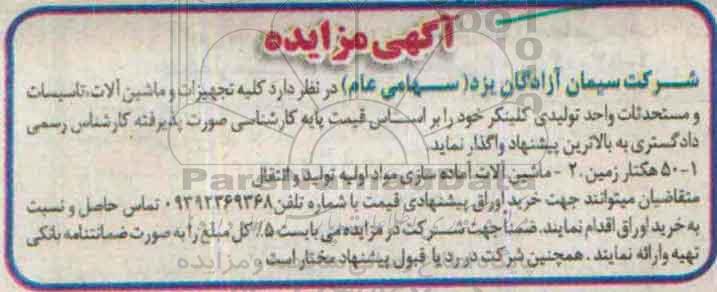 آگهی مزایده
شرکت سیمان آزادگان یزد (سهامی عام) در نظر دارد کلیه تجهیزات و ماشین آلات، تاسیسات
و مستحدثات واحد تولیدی کلینکر خود را بر اساس قیمت پایه کارشناسی صورت پذیرفته کارشناس رسمی
دادگستری به بالاترین پیشنهاد واگذار نماید.
۱- ۵۰ هکتار زمین ۲۰ - ماشین آلات آماده سازی مواد اولیه تولید و انتقال
متقاضیان میتوانند جهت خرید اوراق پیشنهادی قیمت با شماره تلفن ۰۹۳۹۲۳۶۹۳۶۸ تماس حاصل و نسبت
به خرید اوراق اقدام نمایند. ضمناً جهت شرکت در مزایده می بایست ۵٪ کل مبلغ را به صورت ضمانتنامه بانکی
تهیه و ارائه نمایند. همچنین شرکت در رد یا قبول پیشنهاد مختار است
ParsNamadData